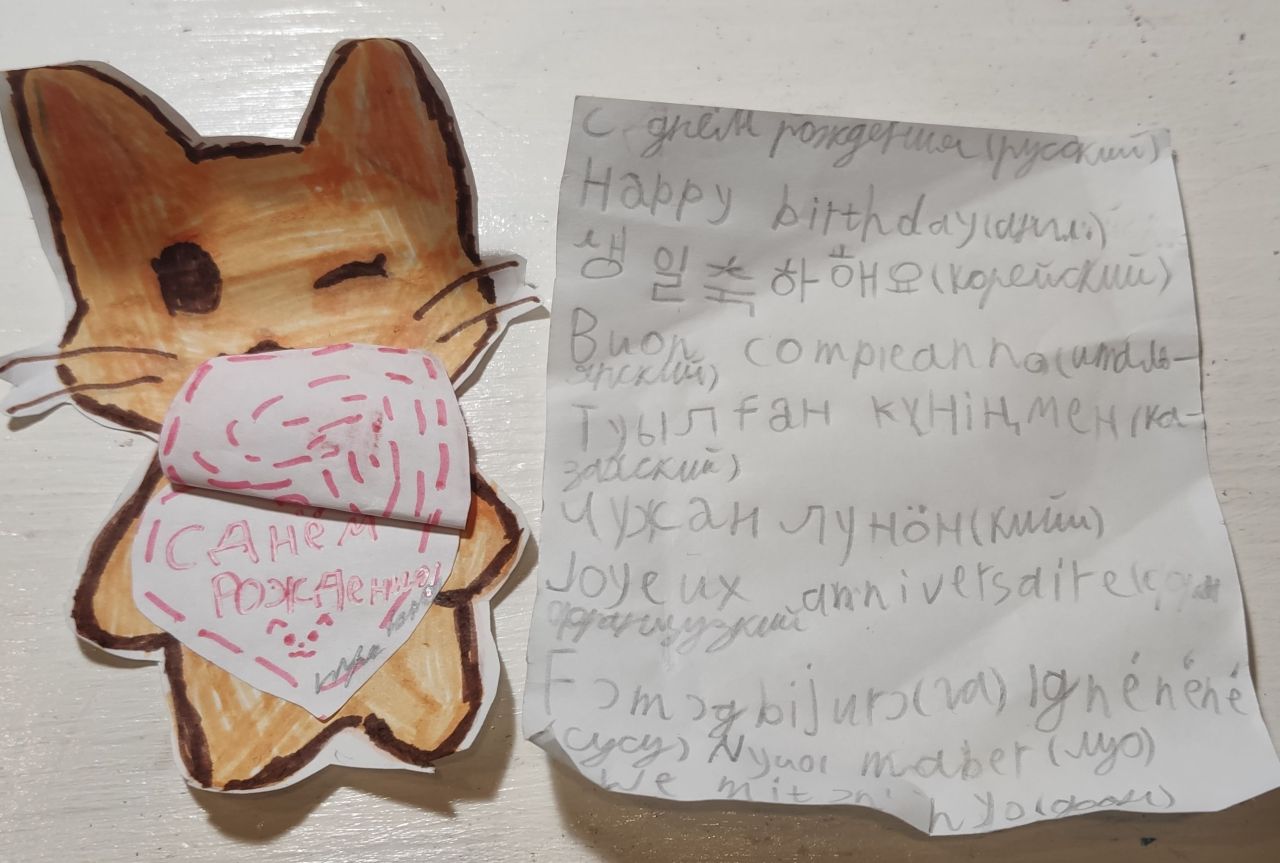 С Днём
рождения
С днём рождения (русский)
Happy birthday (англ.)
생일축하해요 (корейский)
Buon compleanno (италь-
янский)
Туылған күніңмен (ка-
захский)
Чужан лунöн (
Joyeux anniversaire (
французкий
Fɔmɔgbijurɔ (га) Ignénéné
(сусу) Nyuol maber (луо)